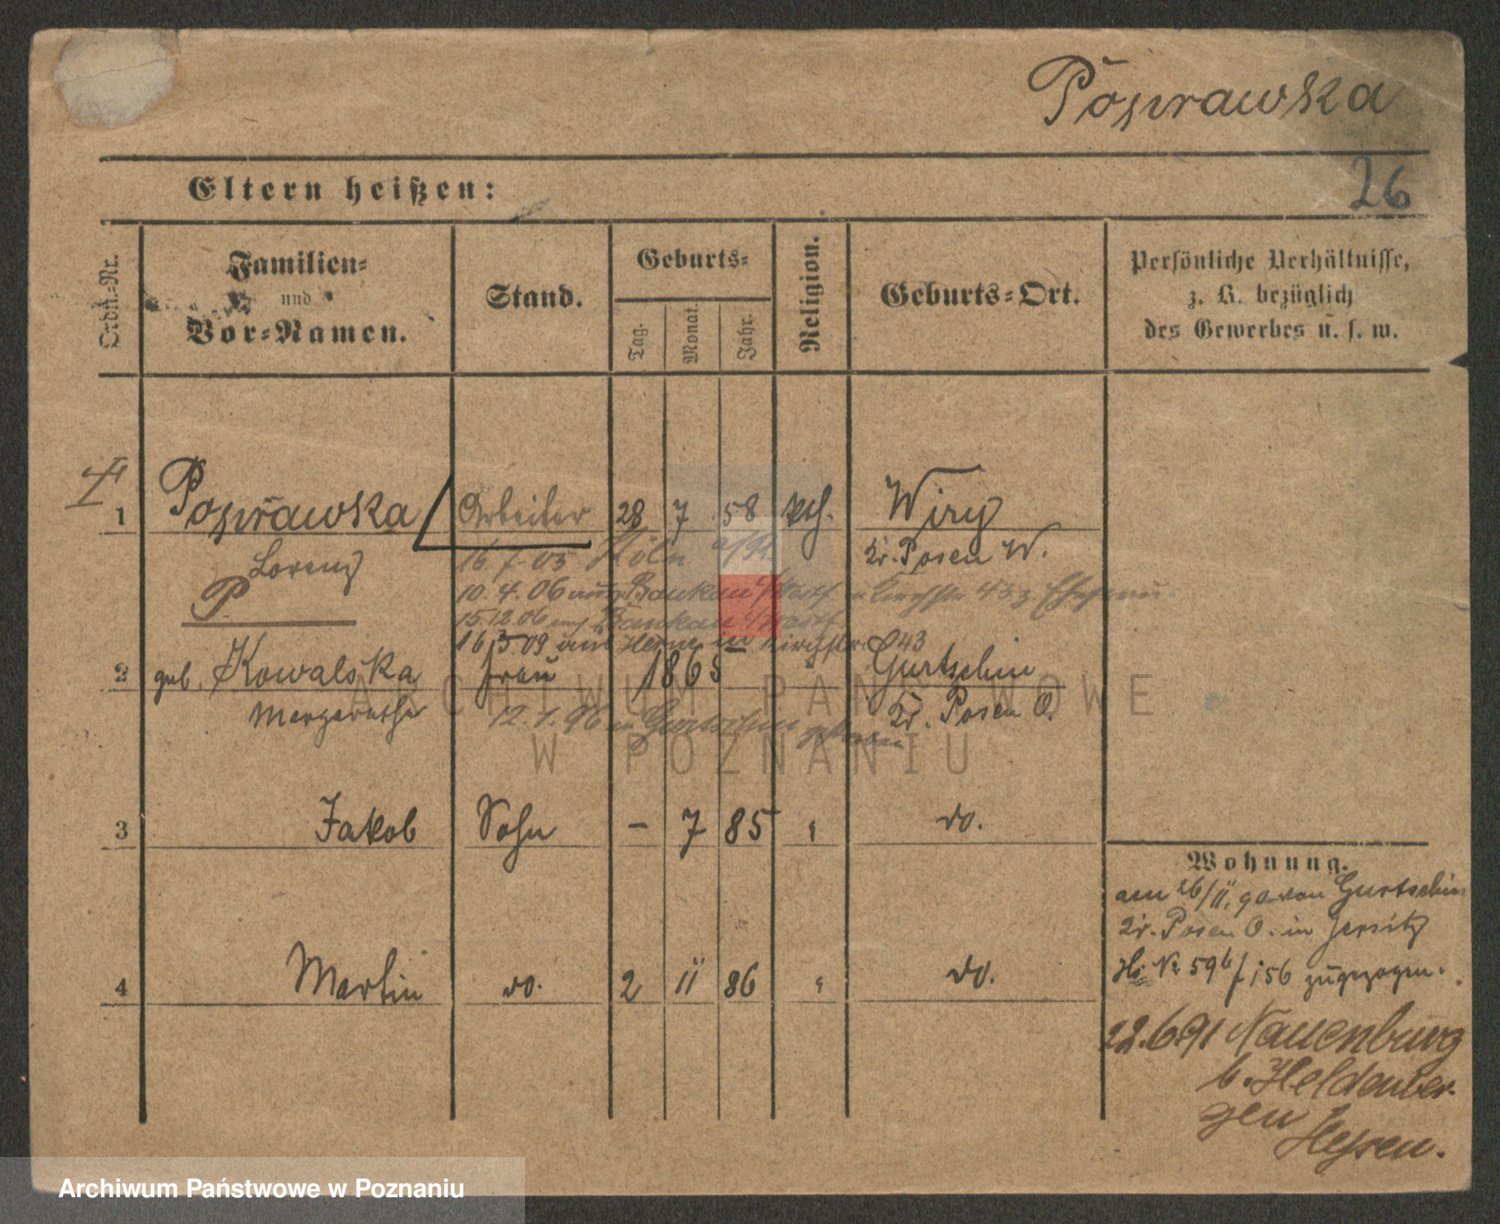 Poprawka
Eltern heißen:
26
Ordn.-Nr.
Familien-
und
Vor-Namen.
Stand.
Geburts-
Tag.
Monat.
Jahr.
Religion.
Geburts-Ort.
Persönliche Verhältnisse,
z. B. bezüglich
des Gewerbes u. s. w.
1 Poprawka Arbeiter 28 7 58 kth. Wiry
Lorenz Kr. Posen W.
P.
16. 7. 05 Köln a/R.
10. 4. 06 aus Baukau
15.12.06
16 3 09 aus Herne 43
2 geb. Kowalska Frau 1865 " Gurtschin
Margarethe Kr. Posen O.
12. 1. 96 in Gurtschin
3 Jakob Sohn - 7 85 " do.
4 Martin do. 2 11 86 " do.
Wohnung.
am 26/11. 90 von Gurtschin
Kr. Posen O. in Jersitz
No 596/156 zugezogen.
22.6.91 Nauenburg
b. Heldenber-
gen Hessen.
ARCHIWUM PAŃSTWOWE
W POZNANIU
Archiwum Państwowe w Poznaniu